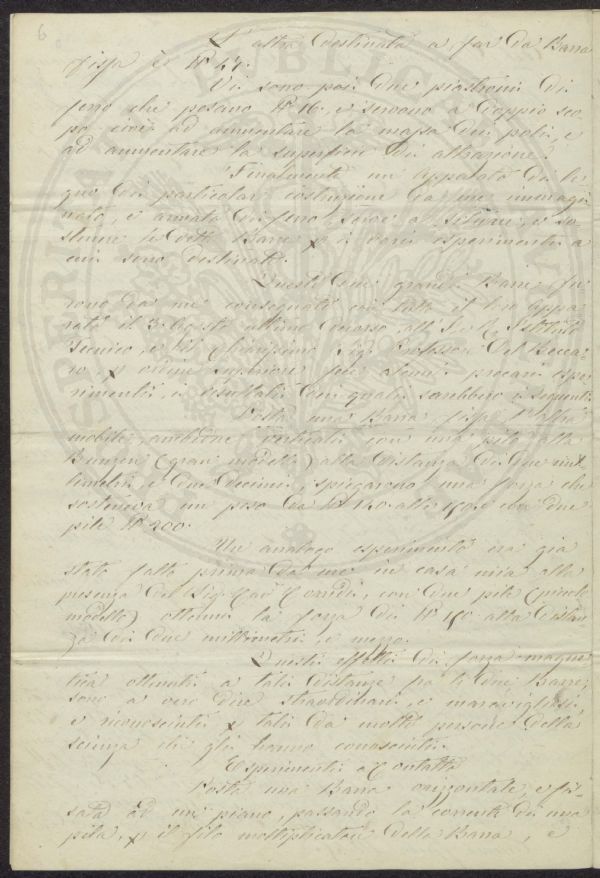 6
L'altra destinata a far da Barra
fissa è lb 47.
Vi sono poi due piastroni di
ferro che pesano lb 16, e servono a doppio sco-
po cioè ad aumentare la massa dei poli, e
ad aumentare la superficie di attrazione.
Finalmente un apparato di le-
gno di particolar costruzione da me immagi-
nato, e armato di ferro, serve a situare, e so-
stenere le dette Barre p i varii esperimenti a
cui sono destinate.
Queste due grandi Barre fu-
rono da me consegnate con tutto il loro appa-
rato il 3 Agosto ultimo decorso all' I. e R. Istituto
Tecnico, e dal chiarissimo Sig. Professor Del Becca-
ro, p ordine superiore fece alcuni precari espe-
rimenti, i resultati dei quali sarebbero i seguenti.
Posta una Barra fissa l'altra
mobile, ambedue verticali con una pila alla
Bunsen (gran modello) alla distanza di due mil-
limetri, e due decimi, spiegarono una forza che
sosteneva un peso da lb 140 alle 150, e con due
pile lb 200.
Un analogo esperimento era già
stato fatto prima da me in casa mia alla
presenza del Sig. Cav. Corridi, con due pile (piccolo
modello) ottenni la forza di lb 150 alla distan-
za di due millimetri, e mezzo.
Questi effetti di forza magne-
tica ottenuti a tali distanze fra le due Barre,
sono a vero dire straordinari, e maravigliosi,
e riconosciuti p tali da molte persone della
scienza che gli hanno conosciuti.
Esperimenti a Contatto
Posta una Barra orizzontale, e fis-
sata ad un piano, passando la corrente di una
pila, p il filo moltiplicatore della Barra, e
PUBLIC